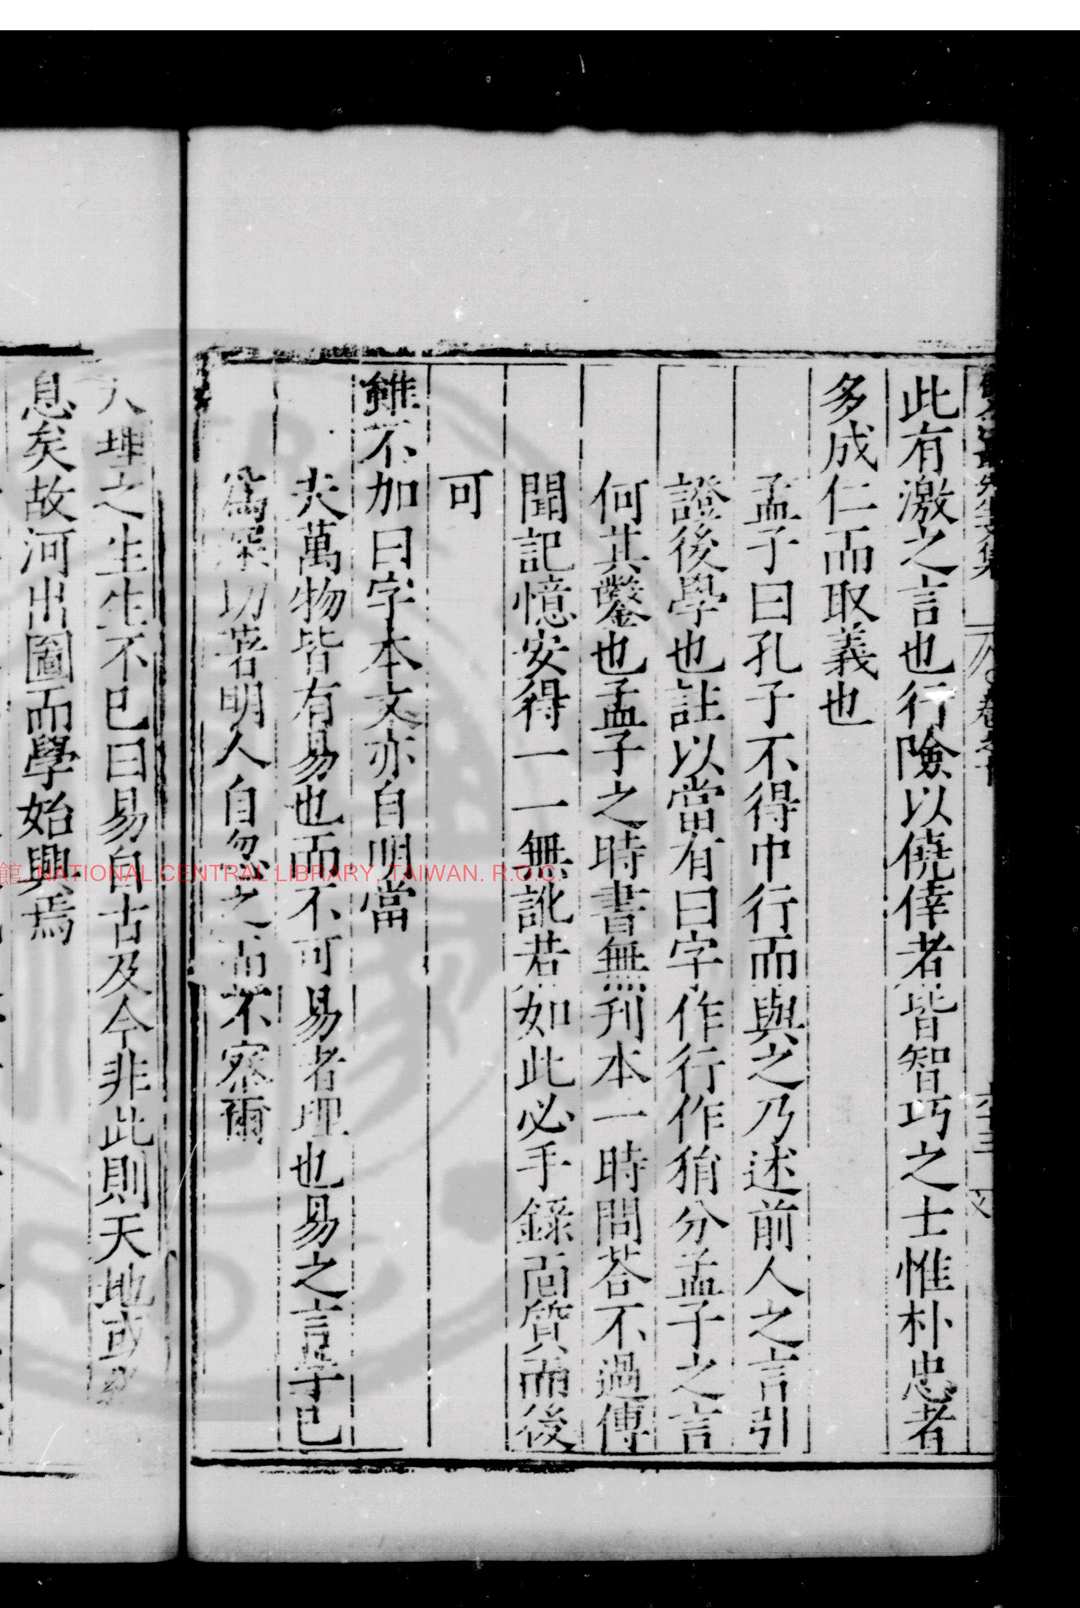 此有激之言也行險以僥倖者皆智巧之士惟朴忠者
多成仁而取義也
孟子曰孔子不得中行而與之乃述前人之言引
證後學也註以當有曰字作行作狷分孟子之言
何其鑿也孟子之時書無刊本一時問荅不過傳
聞記憶安得一一無訛若如此必手錄面質而後
可
雖不加曰字本文亦自明當
夫萬物皆有易也而不可易者理也易之言學已
爲深切著明人自忽之而不察爾
之生生不已曰易自古及今非此則天地或
息矣故河出圖而學始興焉
館 NATIONAL CENTRAL LIBRARY, TAIWAN. R.O.C.